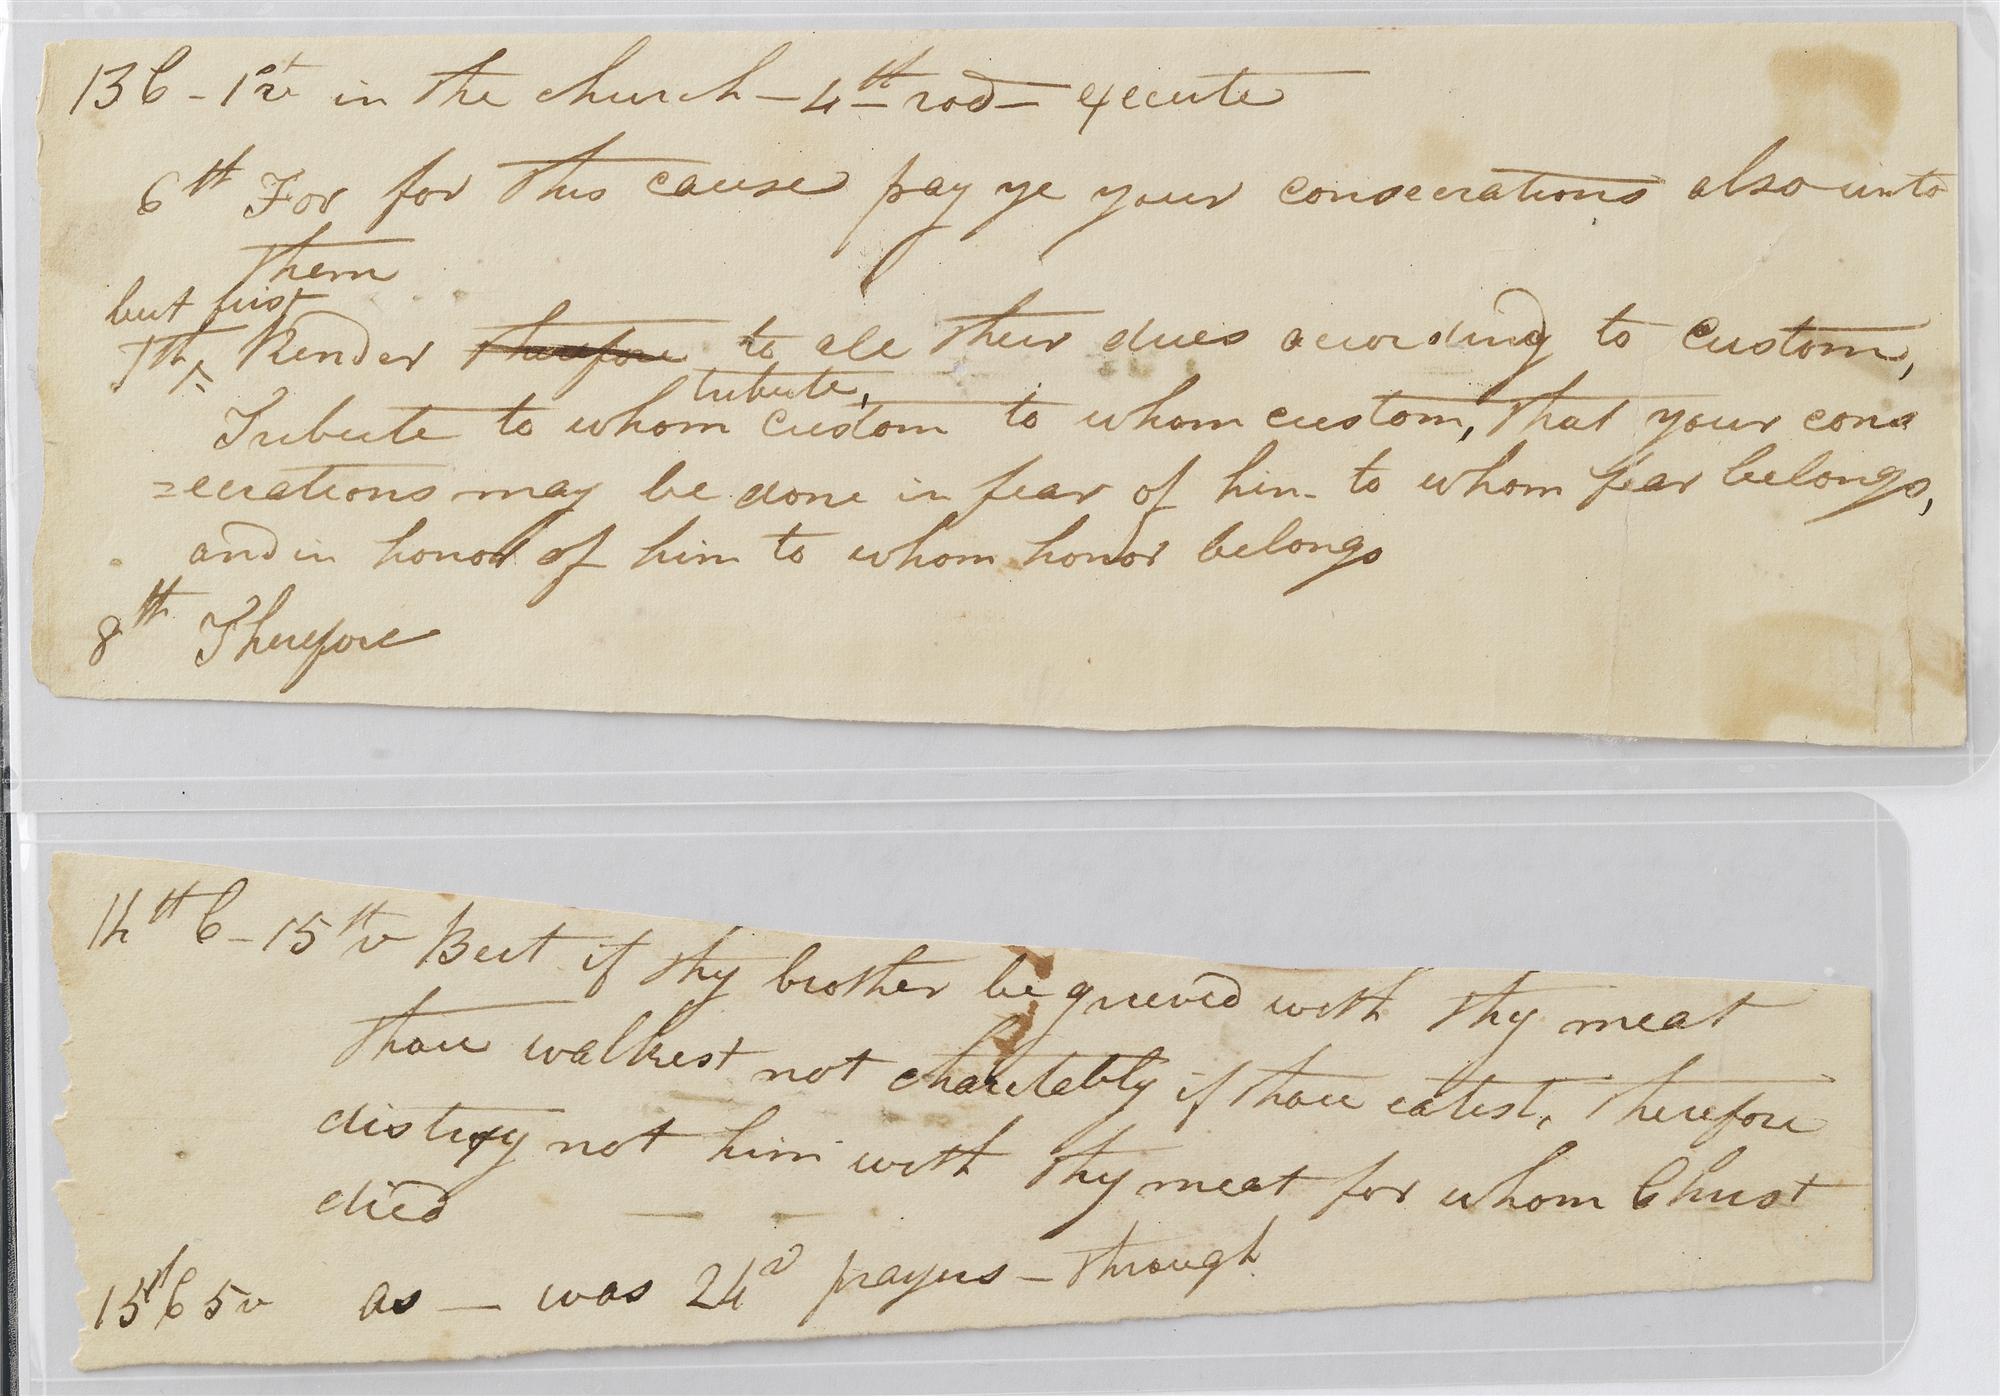 13 C - 1st in the church - 4th rod - execute
6th For for this cause pay ye your consecrations also unto
them
but first
7th ^ Render therefore to all their dues according to custom,
tribute,
Tribute to whom custom to whom custom, that your cons
=ecrations may be done in fear of him to whom fear belongs,
and in honor of him to whom honor belongs
8th Therefore
14th C - 15th v But if thy brother be grieved with thy meat
thou walkest not charitably if thou eatest, therefore
distroy not him with thy meat for whom Christ
died
15th C 5v as — was 24v prayers - through